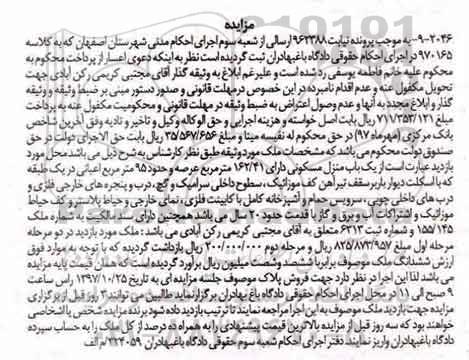 مزایده
۲۰۴۶-۹- به موجب پرونده نیابت ۹۶۲۳۸۸ ارسالی از شعبه سوم اجرای احکام مدنی شهرستان اصفهان که به کلاسه
۹۷۰۱۶۵ در اجرای احکام حقوقی دادگاه باغبهادران ثبت گردیده است نظر به اینکه دعوی اعسار از پرداخت محکوم به
محکوم علیه خانم فاطمه یوسفی رد شده است و علیرغم ابلاغ به وثیقه گذار آقای مجتبی کریمی رکن آبادی جهت
تحویل محکوم عنه و عدم اقدام نامبرده در این خصوص در مهلت قانونی و صدور دستور مبنی بر ضبط وثیقه و وثیقه
گذار و ابلاغ مجدد به آنها و عدم وصول اعتراض به ضبط وثیقه در مهلت قانونی و محکومیت محکوم عنه به پرداخت
مبلغ ۷۱۱/۳۵۳/۱۲۱ ریال بابت اصل خواسته و هزینه اجرایی و حق الوکاله وکیل و تاخیر و تادیه وفق آخرین شاخص
بانک مرکزی (مهرماه ۹۷) در حق محکوم له نفیسه مینا و مبلغ ۳۵/۵۶۷/۶۵۶ ریال بابت حق الاجرای دولت در حق
صندوق دولت محکوم می باشد که مشخصات ملک مورد وثیقه طبق نظر کارشناس به شرح ذیل می باشد محل مورد
بازدید عبارت است از یک باب منزل مسکونی دارای ۱۶۲/۴۱ مترمربع عرصه و حدود ۹۵ متر مربع اعیانی در یک طبقه
که با اسکلت دیوار باربر سقف تیرآهن کف موزائیک، سطوح داخلی سرامیک و گچ، درب و پنجره های خارجی فلزی و
درب های داخلی چوبی، سرویس حمام و آشپزخانه کامل با کابینت فلزی، نمای خارجی و حیاط پلاستر و کف حیاط
موزائیک و اشتراکات آب و برق و گاز با قدمت حدود ۲۰ سال می باشد همچنین دارای سند مالکیت به شماره ملک
۱۵۵/۱۴۵ و شماره ثبت ۶۲۱۳ متعلق به آقای مجتبی کریمی رکن آبادی می باشد: ملک مورد بازدید در دو مرحله
مرحله اول مبلغ ۸۲۵/۸۲۳/۹۵۷ ریال و مرحله دوم ۲۰۰/۰۰۰/۰۰۰ ریال بازداشت گردیده که با توجه به موارد فوق
ارزش ششدانگ ملک موصوف برابر با ششصد و شصت میلیون ریال برآورد گردیده است که همان قیمت پایه مزایده
می باشد لذا این اجرا در نظر دارد جهت فروش پلاک موصوف جلسه مزایده ای به تاریخ ۱۳۹۷/۱۰/۲۵ راس ساعت
۹ صبح الی ۱۱ در محل اجرای احکام حقوقی دادگاه باغ بهادران برگزار نماید طالبین می توانند ۳ روز قبل از برگزاری
مزایده جهت بازدید ملک موصوف به این اجرا مراجعه نمایند تا ترتیب بازدید داده شود برنده مزایده شخص یا اشخاصی
خواهند بود که سه روز قبل از مزایده بالاترین قیمت پیشنهادی را به همراه ده درصد از کل ملک را به حساب سپرده
دادگاه باغبهادران واریز نمایند. دفتر اجرای احکام شعبه سوم حقوقی دادگاه باغبهادران ۳۲۴۰۵۹/م الف